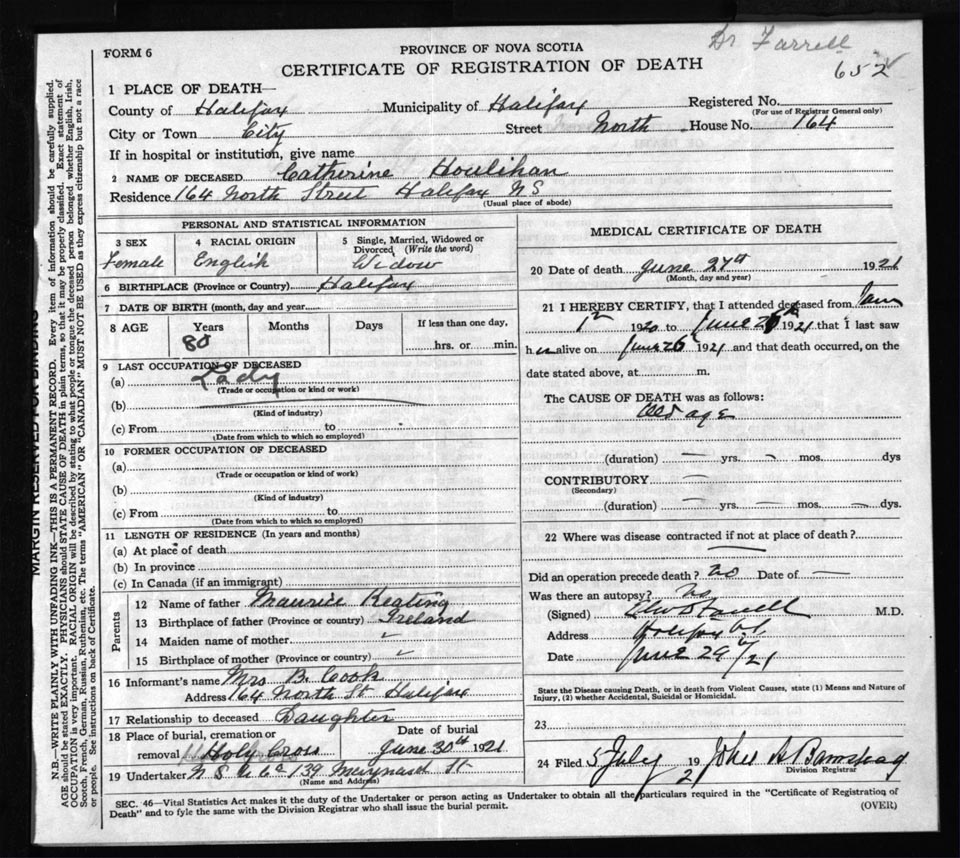 Dr Farrell
652
FORM 6
PROVINCE OF NOVA SCOTIA
CERTIFICATE OF REGISTRATION OF DEATH
1 PLACE OF DEATH—
County of Halifax Municipality of Halifax Registered No.
(For use of Registrar General only)
City or Town City Street North House No. 164
If in hospital or institution, give name
2 NAME OF DECEASED Catherine Houlihan
Residence 164 North Street Halifax NS
(Usual place of abode)
PERSONAL AND STATISTICAL INFORMATION
3 SEX 4 RACIAL ORIGIN 5 Single, Married, Widowed or
Divorced (Write the word)
Female English Widow
6 BIRTHPLACE (Province or Country) Halifax
7 DATE OF BIRTH (month, day and year)
8 AGE Years Months Days If less than one day,
80 hrs. or min.
9 LAST OCCUPATION OF DECEASED
(a) Lady
(Trade or occupation or kind or work)
(b)
(Kind of industry)
(c) From to
(Date from which to which so employed)
10 FORMER OCCUPATION OF DECEASED
(a)
(Trade or occupation or kind of work)
(b)
(Kind of industry)
(c) From to
(Date from which to which so employed)
11 LENGTH OF RESIDENCE (In years and months)
(a) At place of death
(b) In province
(c) In Canada (if an immigrant)
Parents
12 Name of father Maurice Keating
13 Birthplace of father (Province or country) Ireland
14 Maiden name of mother
15 Birthplace of mother (Province or country)
16 Informant's name Mrs B. Cook
Address 164 North St Halifax
17 Relationship to deceased Daughter
18 Place of burial, cremation or Date of burial
removal Holy Cross June 30th 1921
19 Undertaker N S U Co 139 Maynard St
(Name and Address)
MEDICAL CERTIFICATE OF DEATH
20 Date of death June 27th 1921
(Month, day and year)
21 I HEREBY CERTIFY, that I attended deceased from Jan
1st 1920 to June 26th 1921 that I last saw
her alive on June 26 1921 and that death occurred, on the
date stated above, at m.
The CAUSE OF DEATH was as follows:
old age
(duration) — yrs. — mos. dys
CONTRIBUTORY —
(Secondary)
(duration) — yrs. — mos. — dys.
22 Where was disease contracted if not at place of death?
Did an operation precede death? no Date of —
Was there an autopsy? no
(Signed) Farrell M.D.
Address Halifax NS
Date June 29th/21
State the Disease causing Death, or in death from Violent Causes, state (1) Means and Nature of
Injury, (2) whether Accidental, Suicidal or Homicidal.
23
24 Filed 5 July 192 John A Barnstead
Division Registrar
SEC. 46—Vital Statistics Act makes it the duty of the Undertaker or person acting as Undertaker to obtain all the particulars required in the "Certificate of Registration of
Death" and to fyle the same with the Division Registrar who shall issue the burial permit.
(OVER)
MARGIN RESERVED FOR BINDING
N.B.—WRITE PLAINLY WITH UNFADING INK—THIS IS A PERMANENT RECORD. Every item of information should be carefully supplied.
AGE should be stated EXACTLY. PHYSICIANS should STATE CAUSE OF DEATH in plain terms, so that it may be properly classified. Exact statement of
OCCUPATION is very important. RACIAL ORIGIN will be described by stating to what people or tongue the deceased person belonged whether English, Irish,
Scotch, French, German, Russian, Ruthenian, etc. The terms "AMERICAN" OR "CANADIAN" MUST NOT BE USED as they express citizenship but not a race
or people. See instructions on back of Certificate.